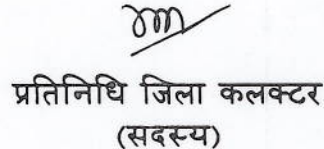 प्रतिनिधि जिला कलक्टर
(सदस्य)